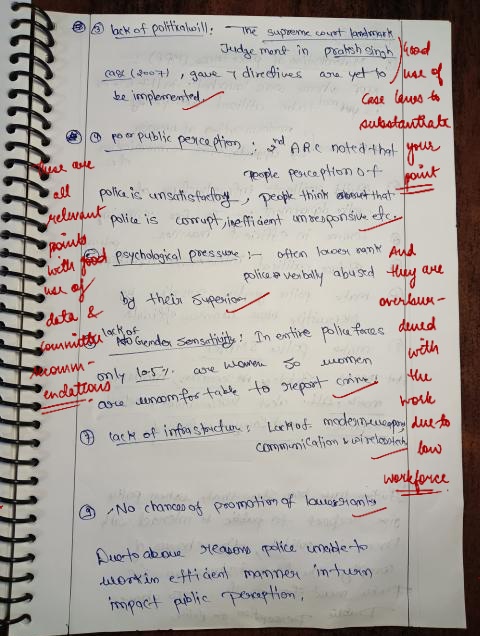 ③ lack of political will : The supreme court landmark
Judgement in prakash singh
case (2007), gave 7 directives are yet to
be implemented.
Good
use of
case laws to
substantiate
your
point
④ poor public perception : 2nd ARC noted that
people perception of
police is unsatisfactory, people think that
police is corrupt, inefficient unresponsive etc.
These are
all
relevant
points
with good
use of
data &
committee
recomm-
endations
psychological pressure :- often lower rank
police verbally abused
by their superior
And
they are
overbur-
dened
with
the
work
due to
low
workforce.
lack of
Gender sensativity : In entire police forces
only 10.5%. are women so women
are uncomfortable to report crime
⑦ lack of infrastructure : Lack of modern weapons,
communication & wireless
⑧ No chances of promotion of lower ranks
Due to above reasons police unable to
work in efficient manner in turn
impact public perception.